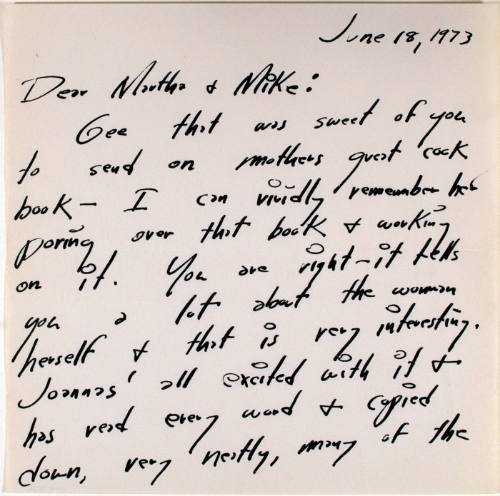 June 18, 1973
Dear Martha & Mike:
Gee that was sweet of you
to send on mothers great cook
book – I can vividly remember her
poring over that book & working
on it. You are right – it tells
you a lot about the woman
herself & that is very interesting.
Joannas' all excited with it &
has read every word & copied
down, very neatly, many of the